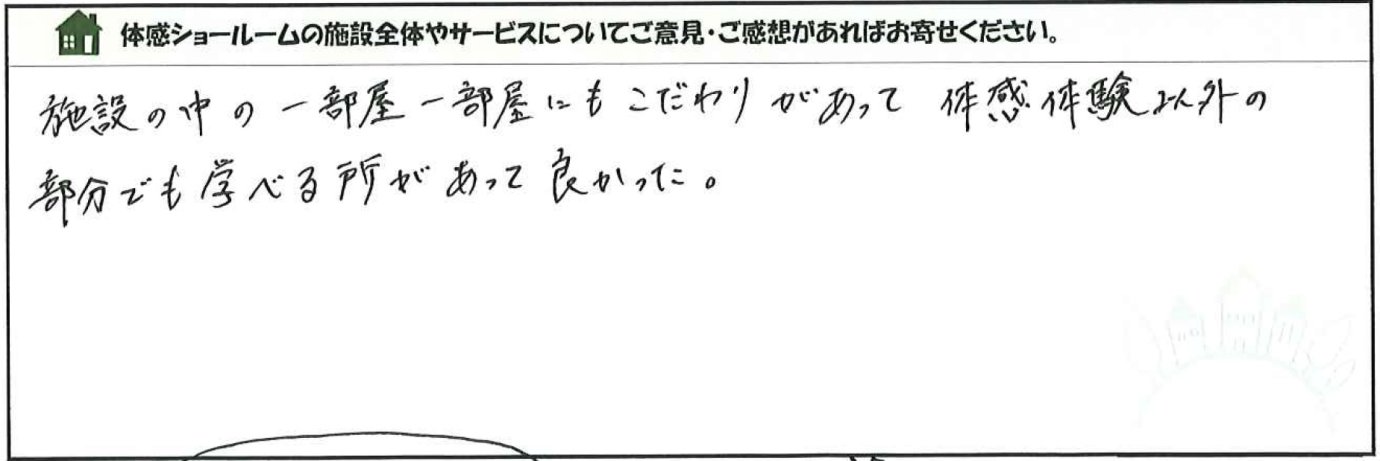 体感ショールームの施設全体やサービスについてご意見・ご感想があればお寄せください。
施設の中の一部屋一部屋にもこだわりがあって 体感体験以外の
部分でも学べる所があって良かった。